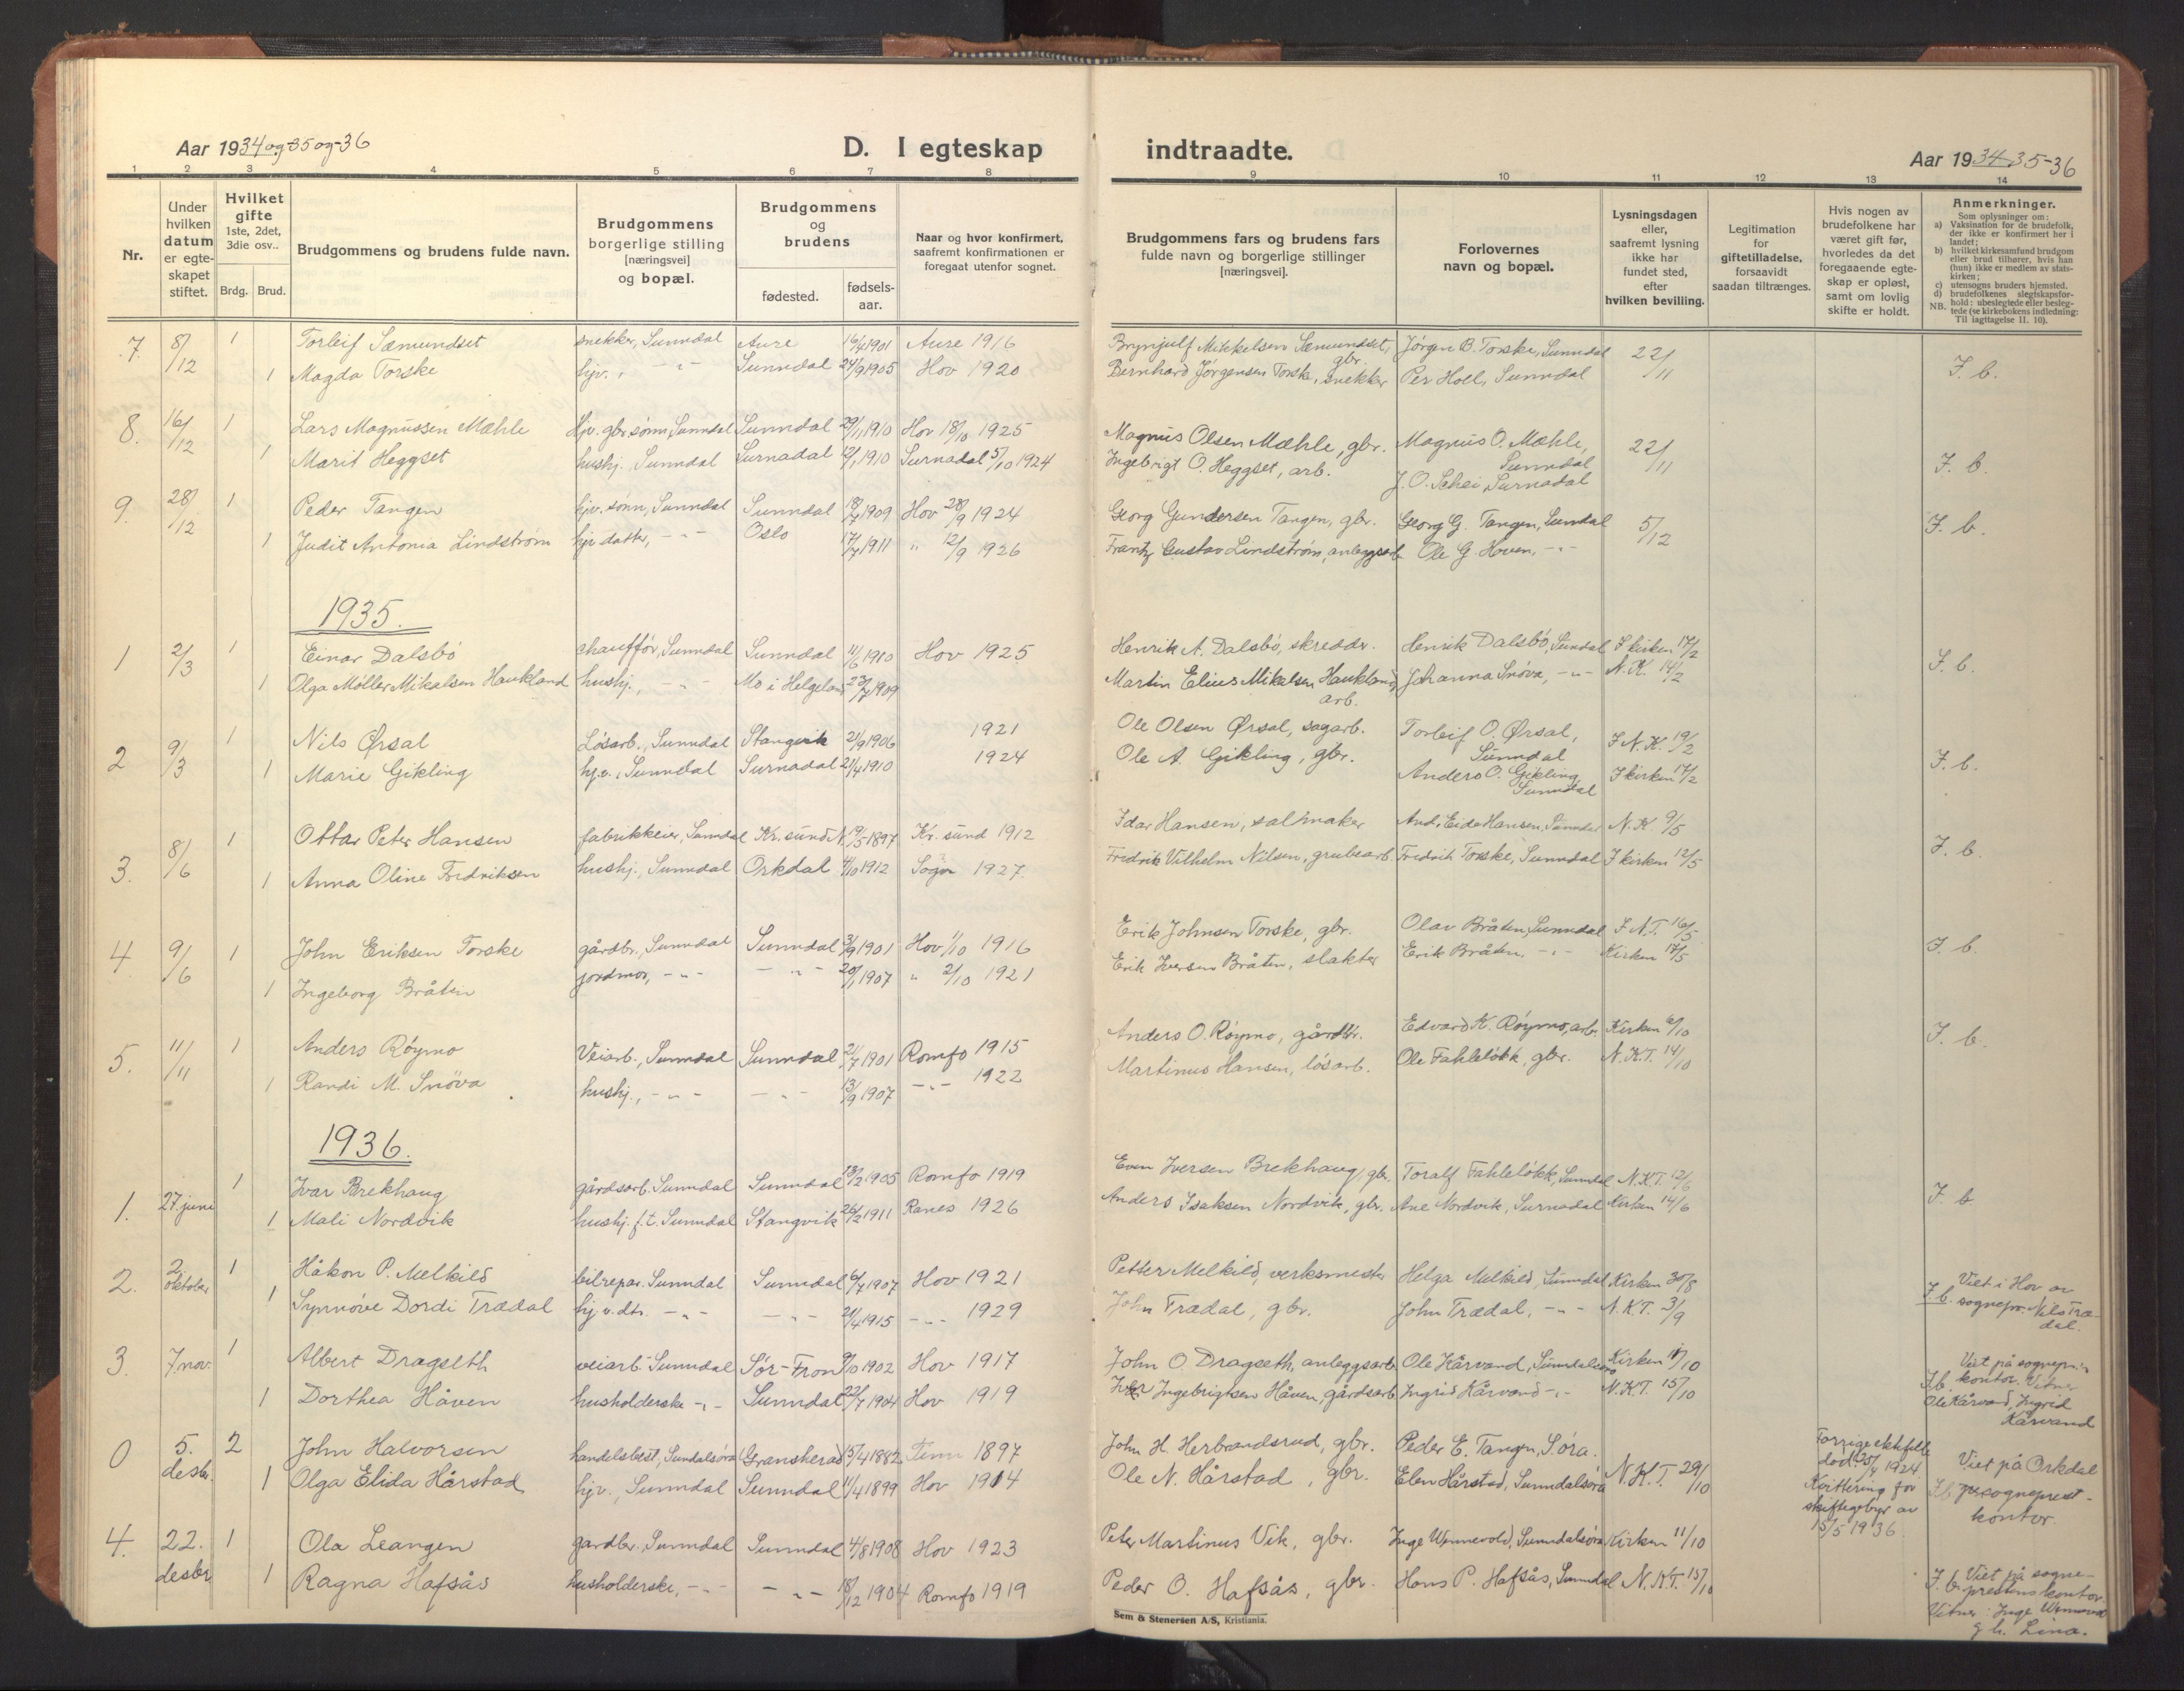 Aar 1934 og 35 og -36
D. I egteskap
indtraadte.
Aar 1934-35-36
1 2 3 4 5 6 7 8 9 10 11 12 13 14
Nr.
Under hvilken datum er egteskapet stiftet.
Hvilket gifte 1ste, 2det, 3die osv..
Brdg. Brud.
Brudgommens og brudens fulde navn.
Brudgommens borgerlige stilling [næringsvei] og bopæl.
Brudgommens og brudens
fødested.
fødselsaar.
Naar og hvor konfirmert, saafremt konfirmationen er foregaat utenfor sognet.
Brudgommens fars og brudens fars fulde navn og borgerlige stillinger [næringsvei].
Forlovernes navn og bopæl.
Lysningsdagen eller, saafremt lysning ikke har fundet sted, efter hvilken bevilling.
Legitimation for giftetilladelse, forsaavidt saadan tiltrænges.
Hvis nogen av brudefolkene har været gift før, hvorledes da det foregaaende egteskap er opløst, samt om lovlig skifte er holdt.
Anmerkninger.
Som oplysninger om:
a) Vaksination for de brudefolk, der ikke er konfirmert her i landet;
b) hvilket kirkesamfund brudgom eller brud tilhører, hvis han (hun) ikke er medlem av statskirken;
c) utensogns bruders hjemsted.
d) brudefolkenes slegtskapsforhold: ubeslegtede eller beslegtede (se kirkebokens indledning:
NB. Til iagttagelse II. 10).
7. 8/12 1 Torleif Sæmundset snekker, Sunndal Aure 16/4 1901 Aure 1916 Brynjulf Mikkelsen Sæmundset, gbr. Jørgen B. Torske, Sunndal 22/11 I. b.
1 Magda Torske hjv., - " - Sunndal 24/9 1905 Hov 1920 Bernhard Jørgensen Torske, snekker Per Hoel, Sunndal
8. 16/12 1 Lars Magnussen Mæhle Hjv. gbr. sønn, Sunndal Sunndal 29/1 1910 Hov 18/10 1925 Magnus Olsen Mæhle, gbr. Magnus O. Mæhle, Sunndal 22/11 I. b.
1 Marit Heggset hushj., Sunndal Surnadal 12/1 1910 Surnadal 5/10 1924 Ingebrigt O. Heggset, arb. J. O. Schei, Surnadal
9. 28/12 1 Peder Tangen hjv. sønn, Sunndal Sunndal 18/7 1909 Hov 28/9 1924 Georg Gundersen Tangen, gbr. Georg G. Tangen, Sunndal 5/12 I. b.
1 Judit Antonia Lindstrøm hjv datter, - " - Oslo 17/7 1911 " 12/9 1926 Frantz Gustav Lindstrøm, anleggsarb Ole G. Hoven, - " -
1935.
1 2/3 1 Einar Dalsbø chauffør, Sunndal Sunndal 11/6 1910 Hov 1925 Henrik A. Dalsbø, skreddr. Henrik Dalsbø, Sundal I kirken 17/2 I. b.
1 Olga Möller Mikalsen Haukland hushj., - " - Mo i Helgeland 23/7 1909 Martin Elius Mikalsen Haukland, arb. Johanna Snøva, - " - N. K. 14/2
2 9/3 1 Nils Ørsal Løsarb., Sunndal Stangvik 21/9 1906 1921 Ole Olsen Ørsal, sagarb. Torleif O. Ørsal, Sunndal I N. K. 19/2 I. b.
1 Marie Gikling hj.v., Sunndal Surnadal 21/4 1910 1924 Ole A. Gikling, gbr. Anders O. Gikling, Sunndal I kirken 17/2
3. 8/6 1 Ottar Peter Hansen fabrikkeier, Sunndal Kr. sund N. 19/5 1897 Kr. sund 1912 Idar Hansen, salmaker And. Eide Hansen, Sunndal N. K. 9/5 I. b.
1 Anna Oline Fredriksen hushj., Sunndal Orkdal 4/10 1912 1927. Fredrik Vilhelm Nilsen, grubearb. Fredrik Torske, Sunndal I kirken 12/5
4. 9/6 1 John Eriksen Torske gårdbr., Sunndal Sunndal 3/9 1901 Hov 1/10 1916 Erik Johnsen Torske, gbr. Olav Bråten, Sunndal I N.T. 16/5 I. b.
1 Ingeborg Bråten jordmor, - " - - " - 20/1 1907 " 2/10 1921 Erik Iversen Bråten, slakter Erik Bråten, - " - Kirken 17/5
5. 11/11 1 Anders Røymo Veiarb., Sunndal Sunndal 21/7 1901 Romfo 1915 Anders O. Røymo, gårdbr. Edvard K. Røymo, arb. Kirken 6/10 I. b.
1 Randi M. Snøva hushj., - " - - " - 13/9 1907 - " - 1922 Martinus Hansen, løsarb. Ole Fahleløkk, gbr. N.K.T. 14/10
1936.
1. 27. juni 1 Ivar Brekhaug gårdsarb. Sunndal Sunndal 13/2 1905 Romfo 1919 Even Iversen Brekhaug, gbr. Toralf Fahleløkk, Sunndal N.K.T. 12/6 I. b.
1 Mali Nordvik hushj. f.t. Sunndal Stangvik 26/2 1911 Ranes 1926 Anders Isaksen Nordvik, gbr. Ane Nordvik, Surnadal Kirken 14/6
2. 2. oktober 1 Håkon P. Melkild bilrepar. Sunndal Sunndal 6/7 1907 Hov 1921 Petter Melkild, verksmester Helga Melkild, Sunndal Kirken 30/8 I. b. Viet i Hov av sognepr. Nils Trædal.
1 Synnøve Dordi Trædal hj.v.dtr. - " - - " - 21/4 1915 - " - 1929 John Trædal, gbr. John Trædal, - " - N.K.T. 3/9
3. 7. nov. 1 Albert Dragseth veiarb. Sunndal Sør-Fron 9/10 1902 Hov 1917 John O. Dragseth, anleggsarb Ole Kårvand, Sunndalsøra Kirken 11/10 I. b. Viet på sognepr.s kontor. Vitner Ole Kårvand, Ingrid Kårvand
1 Dorthea Håven husholderske - " - Sunndal 22/7 1904 Hov 1919 Iver Ingebrigtsen Håven, gårdsarb Ingrid Kårvand - " - N.K.T. 15/10
0 5. desbr. 2 John Halvorsen handelsbest, Sundalsøra Gransherad 15/4 1882 Tinn 1897 John H. Herbrandsrud, gbr. Peder E. Tangen, S.øra. N.K.T. 29/10 Forrige ektefelle død 25/4 1924. Kvittering for skiftegebyr av 15/5 1936. I. b. Viet på Orkdal sogneprestkontor.
1 Olga Elida Hårstad hjv., Sunndal Sunndal 11/4 1899 Hov 1914 Ole N. Hårstad, gbr. Elen Hårstad, Sunndalsøra
4. 22. desbr 1 Ola Leangen gardbr., Sunndal Sunndal 4/8 1908 Hov 1923 Peter Martinus Vik, gbr. Inge Wennevold, Sunndalsøra Kirken 11/10
1 Ragna Hafsås husholderske, - " - - " - 18/12 1904 Romfo 1919 Peder O. Hafsås, gbr. Hans P. Hafsås, Sunndal N.K.T. 15/10 I. b. Viet på sogneprestens kontor. Vitner: Inge Wennevold
Sem & Stenersen A/S, Kristiania.